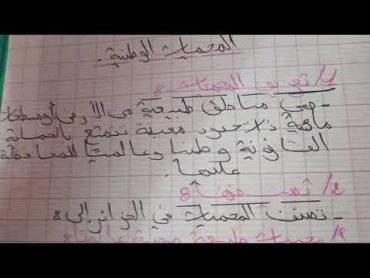 المحميات الوطنية.
1/ تعريف المحميات:
- هي مناطق طبيعية من الأرض أو مسطحات
مائية ذات حدود معينة تتمتع بالحماية
القانونية وطنيا وعالميا للمحافظة
عليها.
2/ تصنيفها:
- تصنف المحميات في الجزائر إلى:
محميات طبيعية